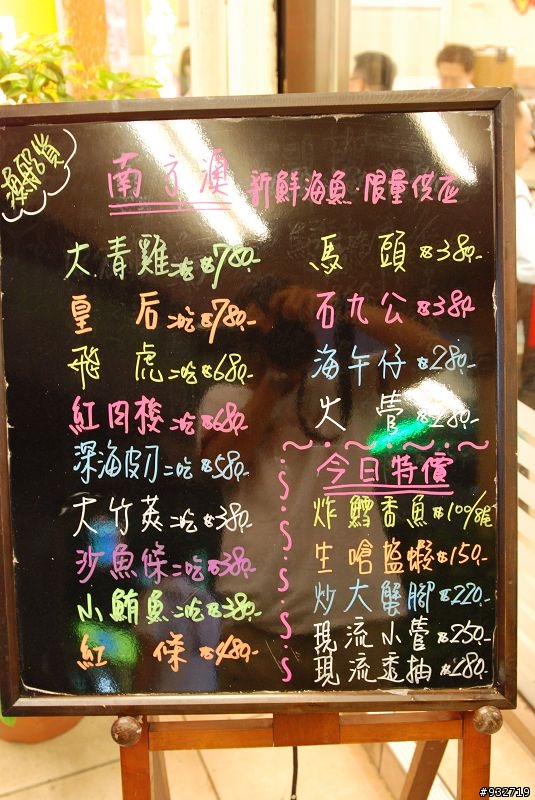 漁船貨
南方澳 新鮮海魚·限量供应
大青雞二吃$780.-
皇后二吃$780.-
飛虎二吃$680.-
紅肉桜二吃$680.-
深海皮刀二吃$580.-
大竹莢二吃$380.-
沙魚條二吃$380.-
小鮪魚二吃$380.-
紅條$480.-
馬頭$380.-
石九公$380.-
海午仔$280.-
火管$280.-
今日特價
炸鱈香魚$100/8尾
生嗆盐蝦$150.-
炒大蟹腳$220.-
現流小管$250.-
現流透抽$280.-
#932719